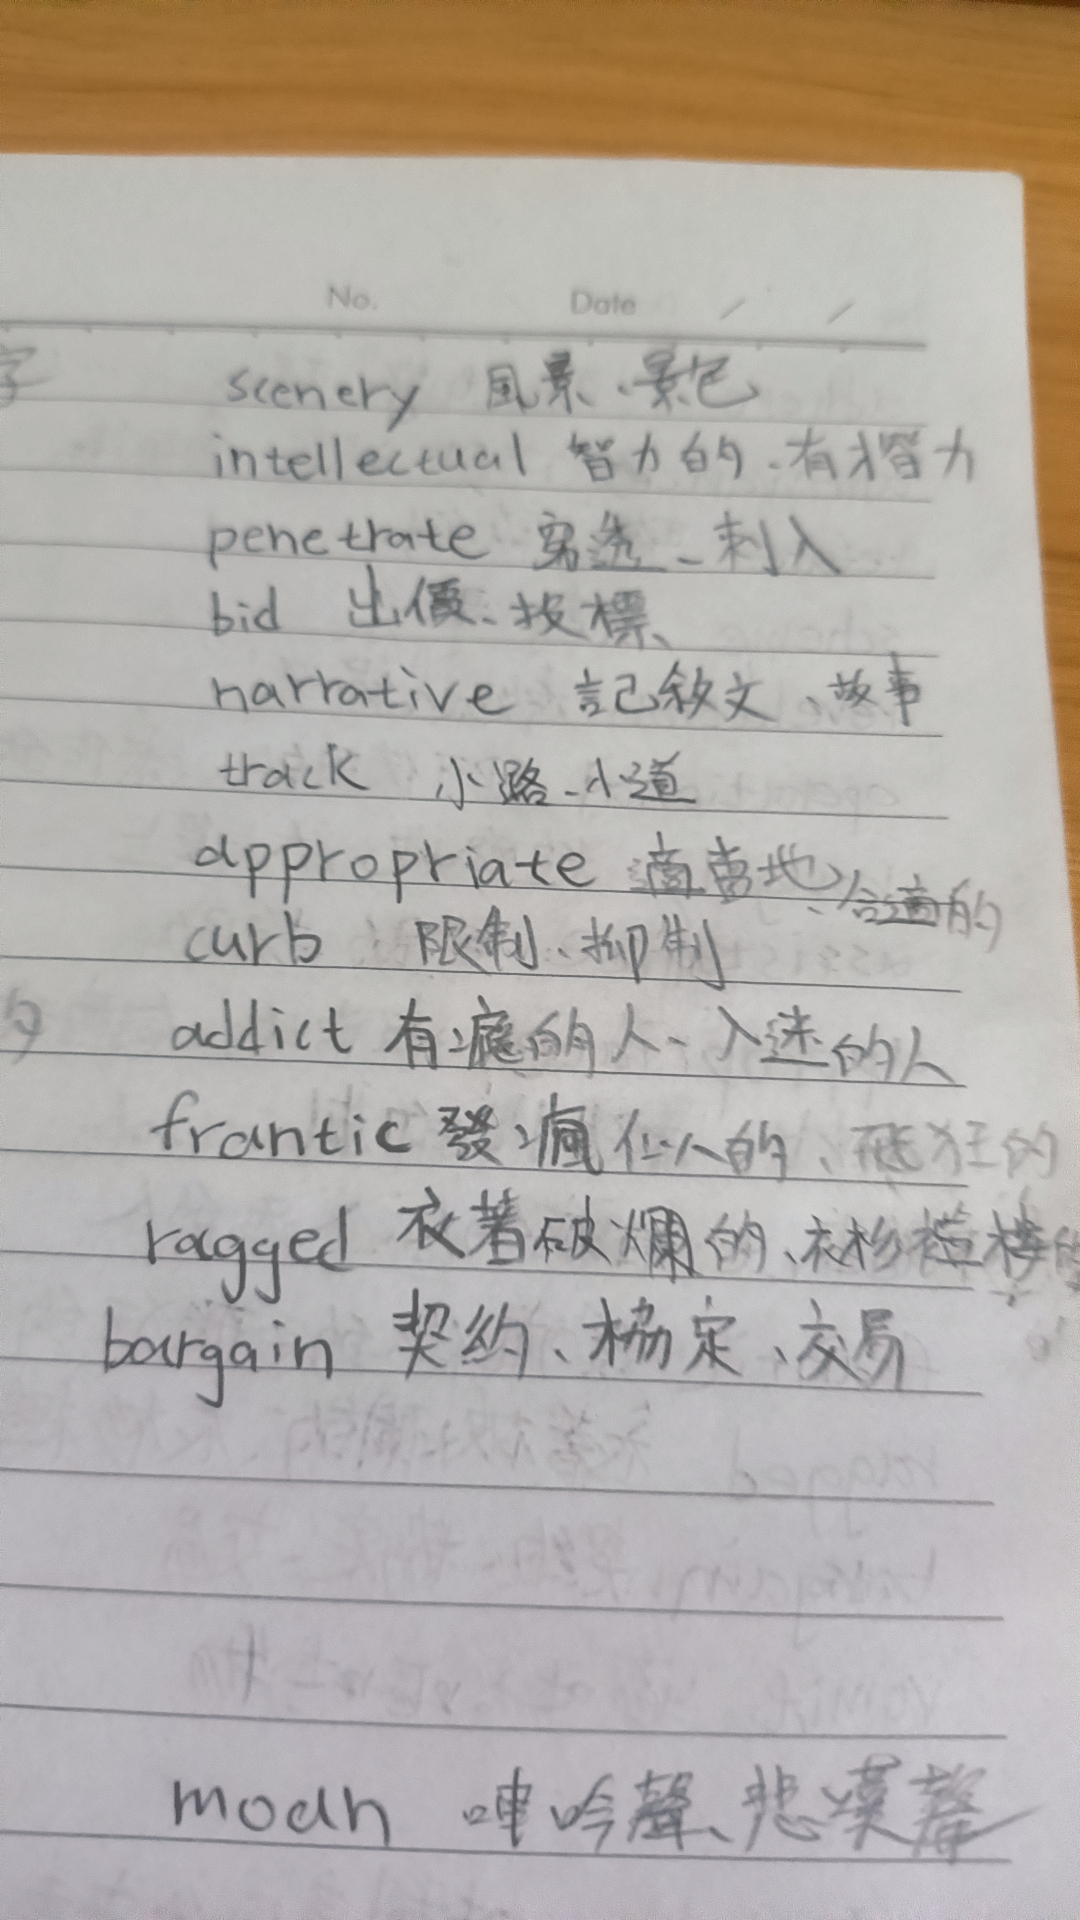 No. Date / /
字 scenery 風景、景色
intellectual 智力的、有智力
penetrate 穿透、刺入
bid 出價、投標、
narrative 記敘文、故事
track 小路、小道
appropriate 適當地、合適的
curb 限制、抑制
addict 有癮的人、入迷的人
frantic 發瘋似的、瘋狂的
ragged 衣著破爛的、衣衫襤褸的
bargain 契約、協定、交易
moan 呻吟聲、悲嘆聲